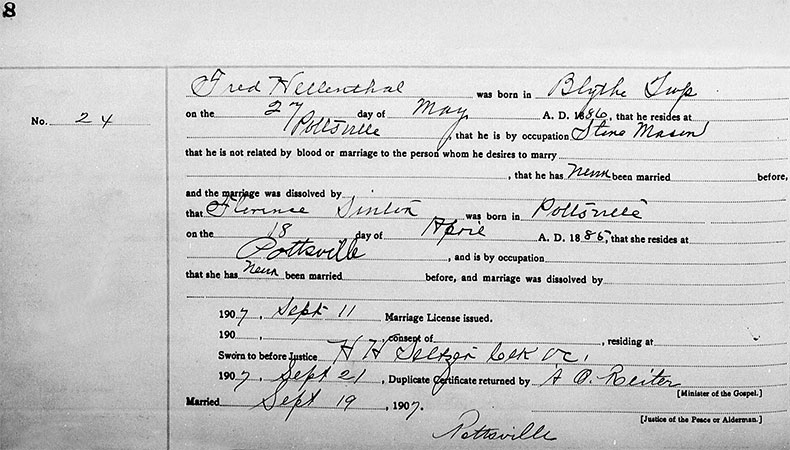 8
Fred Hellenthal was born in Blythe Twp
No. 24
on the 27 day of May A. D. 1886, that he resides at
Pottsville, that he is by occupation Stone Mason
that he is not related by blood or marriage to the person whom he desires to marry
, that he has never been married before,
and the marriage was dissolved by
that Florence was born in Pottsville
on the 18 day of April A. D. 1885, that she resides at
Pottsville, and is by occupation
that she has never been married before, and marriage was dissolved by
1907, Sept 11 Marriage License issued.
190 , consent of , residing at
Sworn to before Justice H H Seltzer Clk O.C.
1907, Sept 21, Duplicate Certificate returned by A O. Reiter
[Minister of the Gospel.]
Married Sept 19, 1907.
[Justice of the Peace or Alderman.]
Pottsville